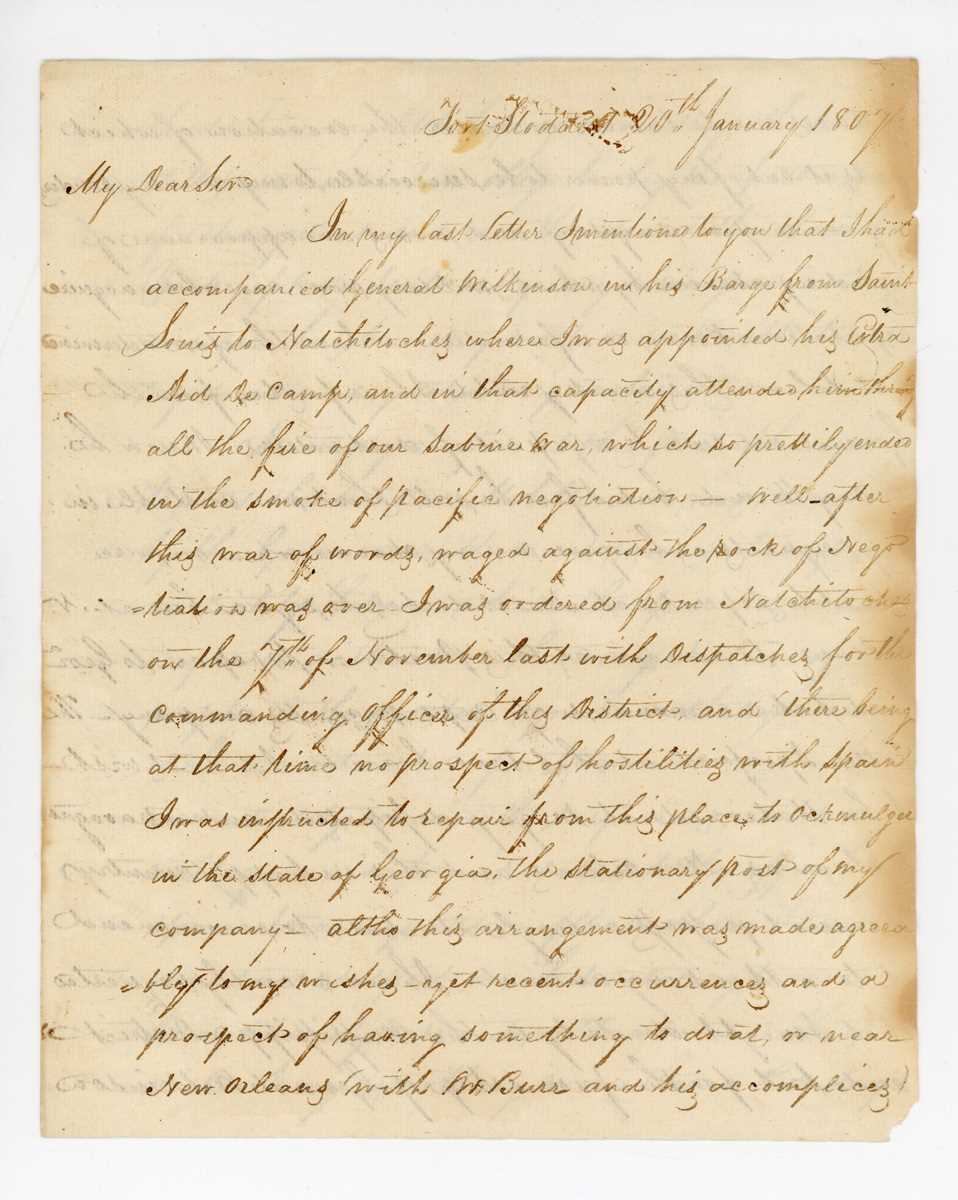 Fort Stoddert 20th January 1807
My Dear Sir
In my last Letter I mentioned to you that I had
accompanied General Wilkinson in his Barge from Saint
Louis to Natchitoches where I was appointed his Extra
Aid De Camp, and in that capacity attended him thro
all the fire of our Sabine War, which so prettily ended
in the smoke of pacific negotiation — Well – after
this war of words, waged against the rock of Nego
=tiation was over I was ordered from Natchitoches
on the 7th of November last with Dispatches for the
commanding officer of this District, and there being
at that time no prospect of hostilities with Spain
I was instructed to repair from this place to Ockmulgee
in the state of Georgia, the stationary post of my
company – altho this arrangement was made agreea
=bly to my wishes – yet recent occurrences and a
prospect of having something to do at, or near
New Orleans (with Mr Burr and his accomplices)